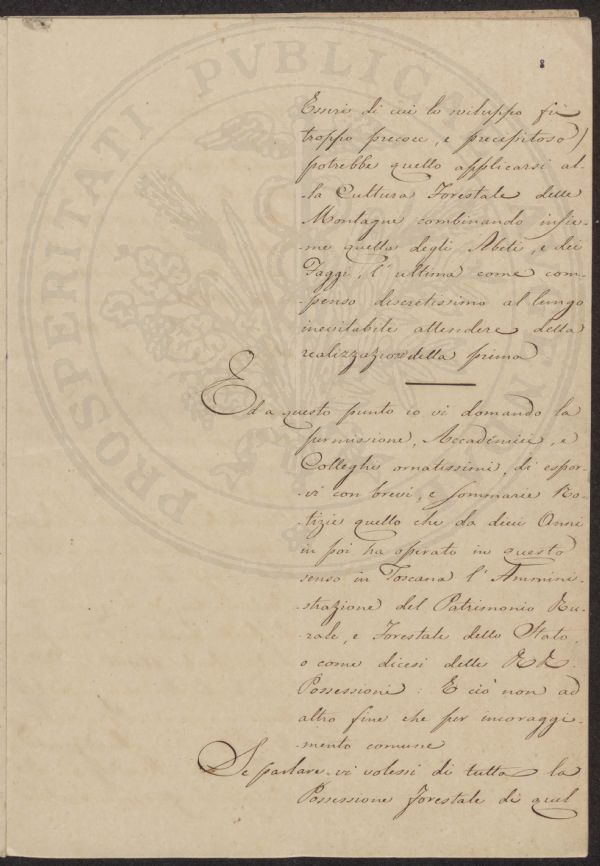 PROSPERITATI PVBLICAE
8
Esseri di cui lo sviluppo fù
troppo precoce, e precipitoso)
potrebbe quello applicarsi al-
-la Cultura Forestale delle
Montagne combinando insie-
-me quella degli Abeti, e dei
Faggi, l'ultima come com-
-penso discretissimo al lungo
inevitabile attendere della
realizzazione della prima
Ed a questo punto io vi domando la
permissione, Accademici, e
Colleghi ornatissimi, di espor-
-vi con brevi, e sommarie No-
-tizie quello che da dieci Anni
in poi ha operato in questo
senso in Toscana l'Ammini-
-strazione del Patrimonio Ru-
-rale, e Forestale dello Stato,
o come dicesi delle RR.
Possessioni: E ciò non ad
altro fine che per incoraggi-
-mento comune
Se parlare vi volessi di tutta la
Possessione Forestale di quel